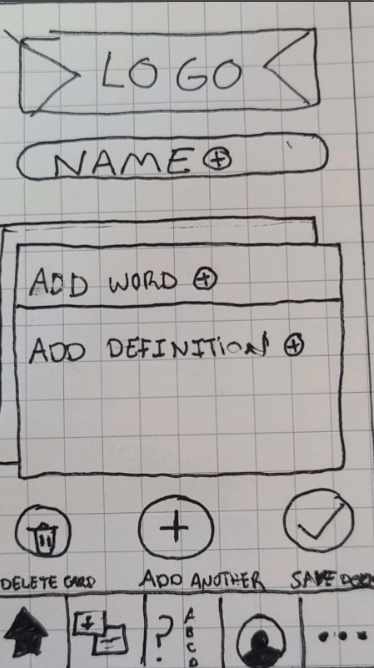 LOGO
NAME
ADD WORD
ADD DEFINITION
DELETE CARD
ADD ANOTHER
SAVE
?
A
B
C
D